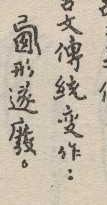 古文傳統变作：
圖形遂廢。